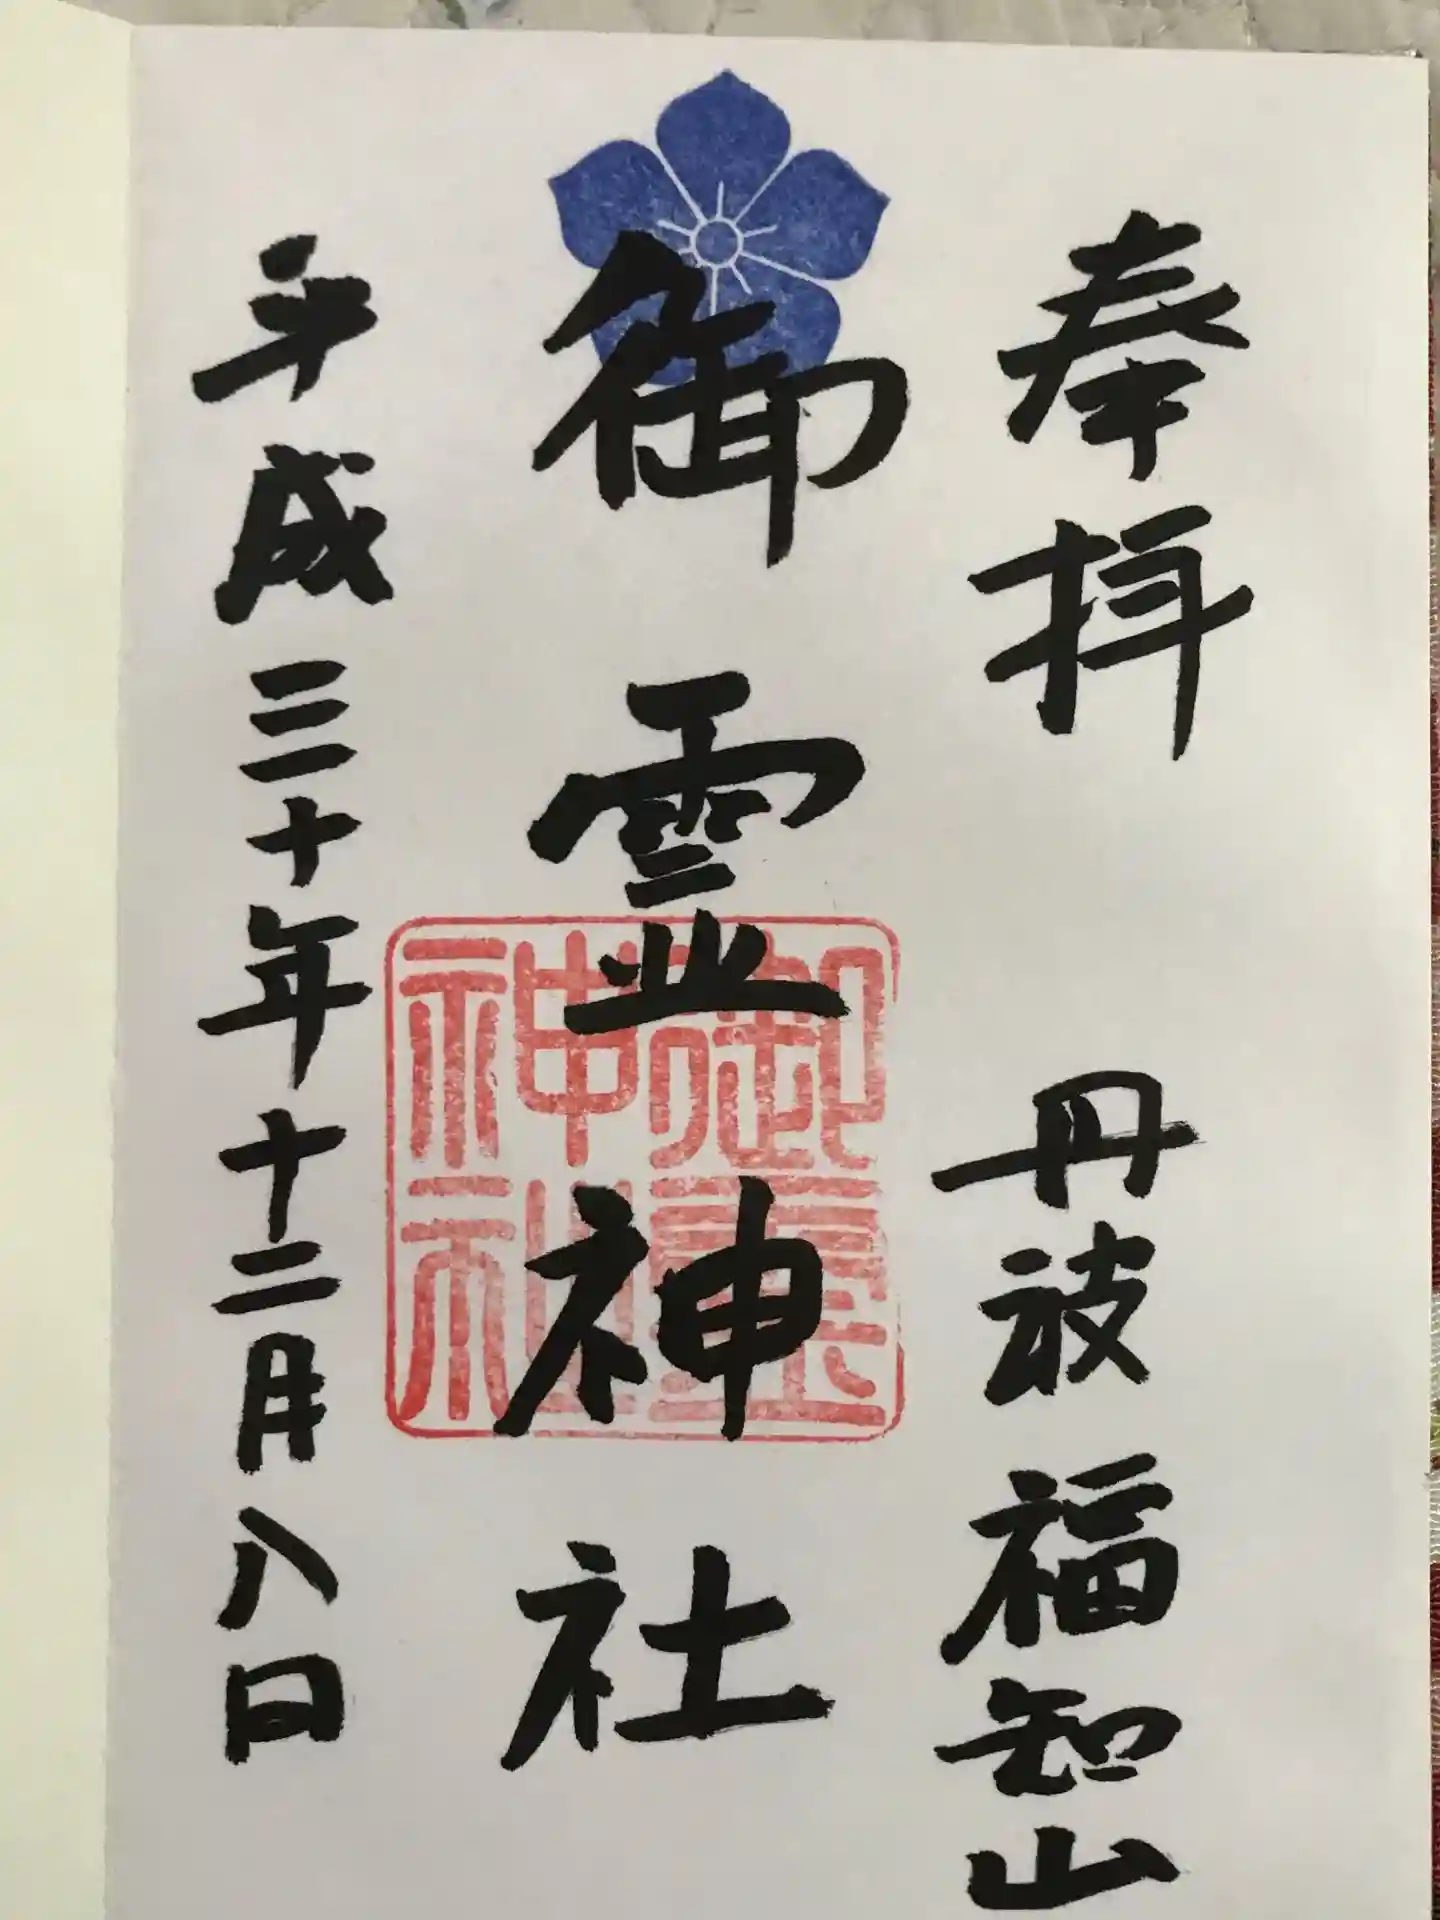 奉拝 丹波福知山
御霊神社
御霊神社
平成三十年十二月八日